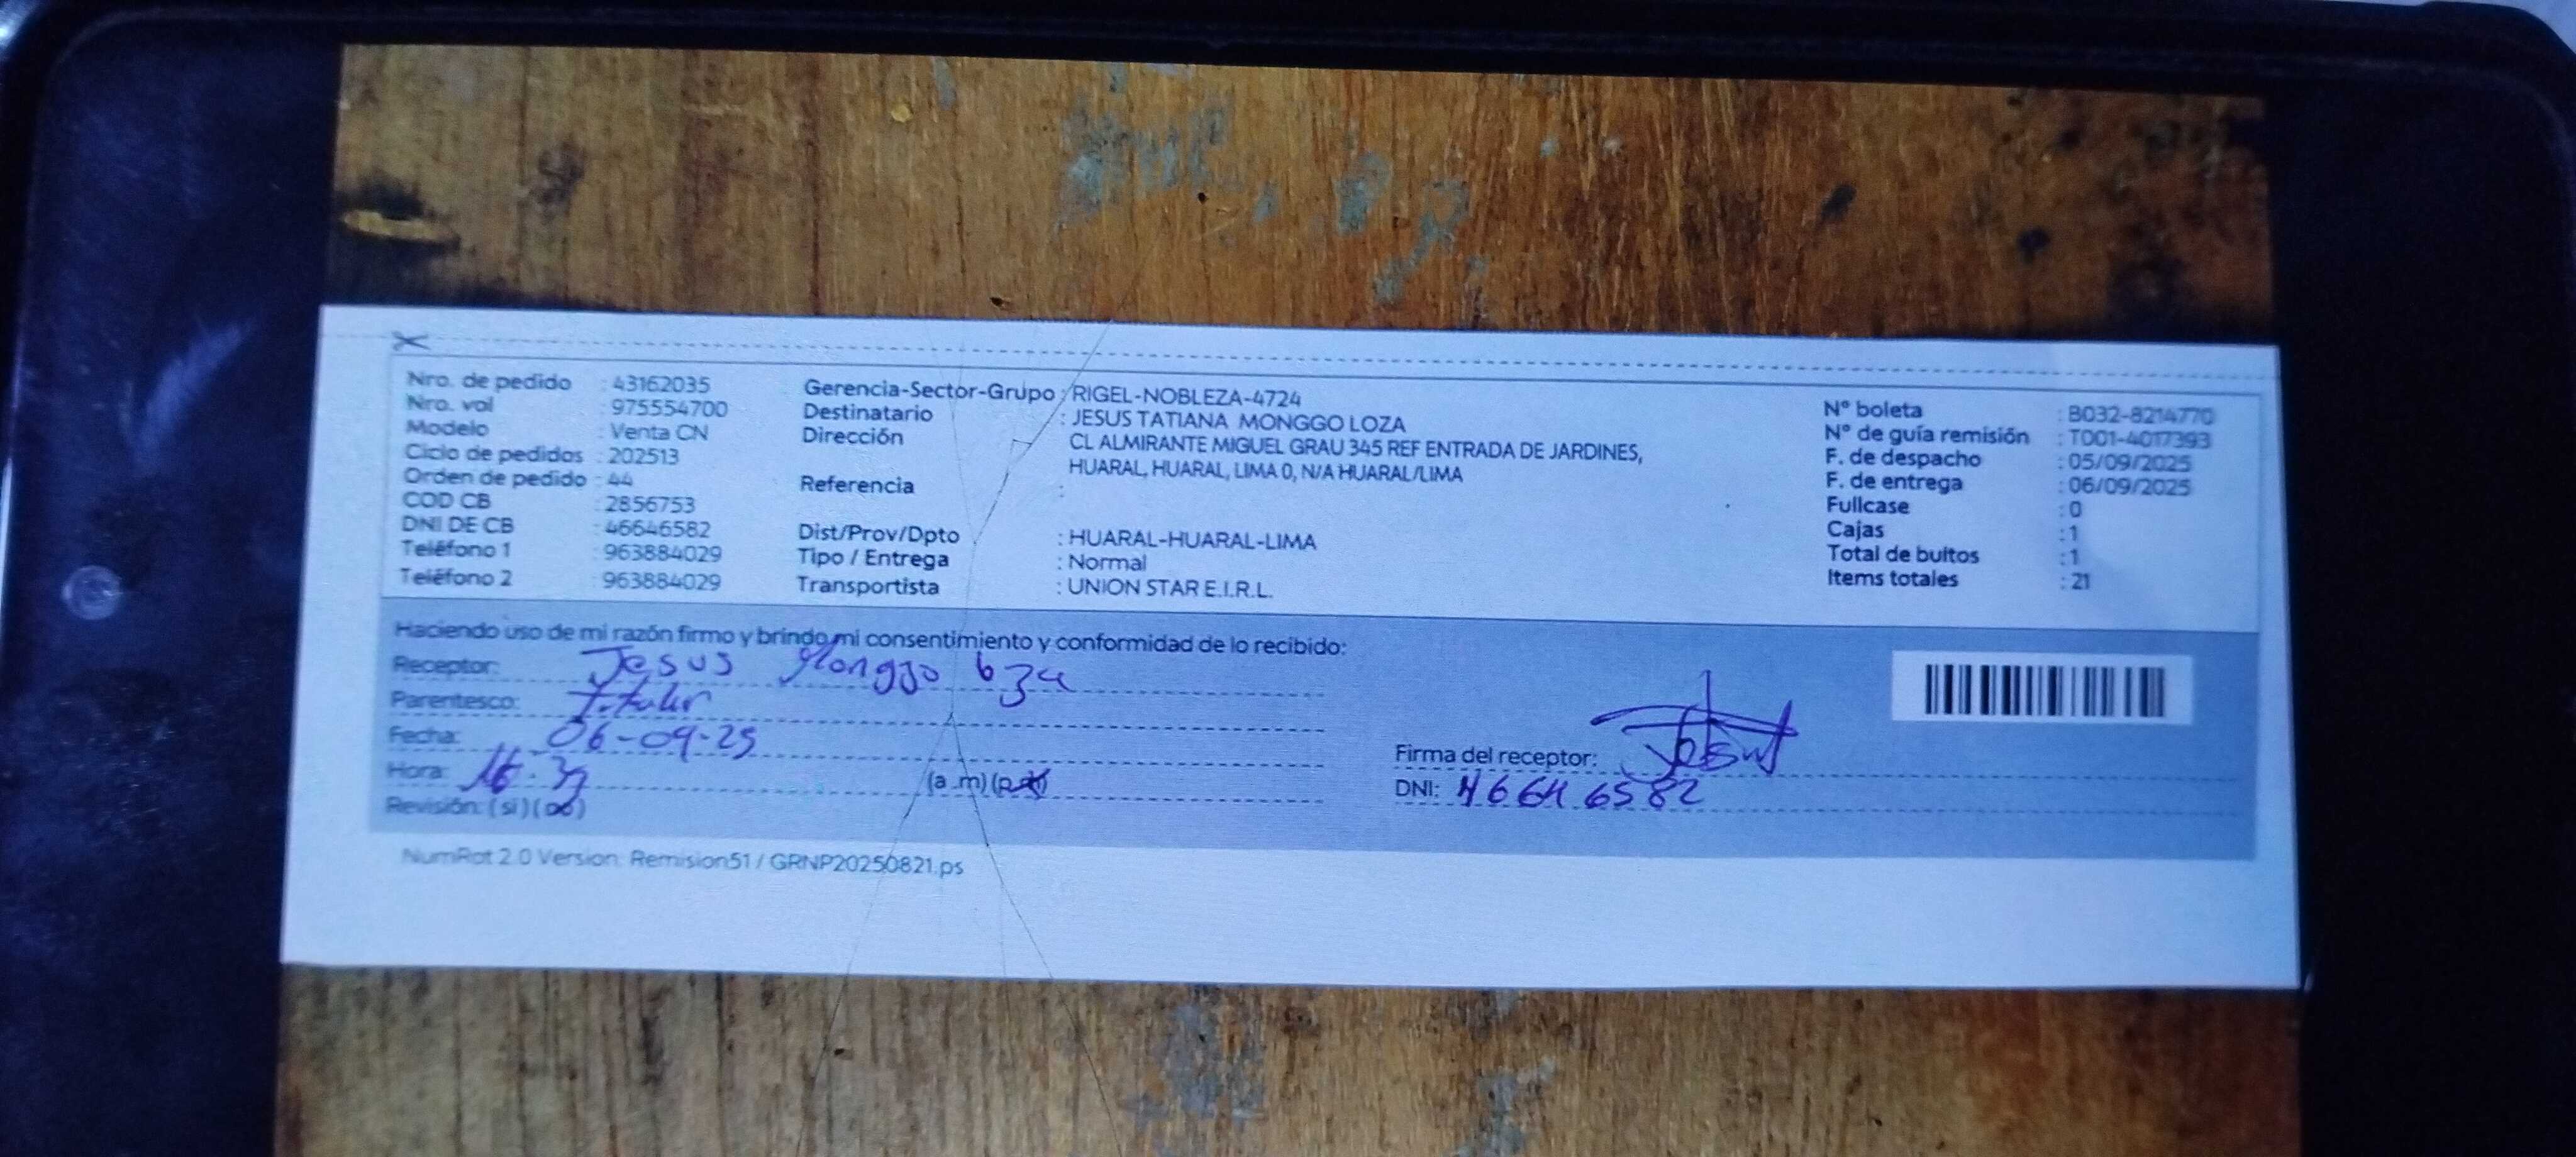 Nro. de pedido : 43162035
Nro. vol : 975554700
Modelo : Venta CN
Ciclo de pedidos : 202513
Orden de pedido : 44
COD CB : 2856753
DNI DE CB : 46646582
Teléfono 1 : 963884029
Teléfono 2 : 963884029
Gerencia-Sector-Grupo : RIGEL-NOBLEZA-4724
Destinatario : JESUS TATIANA MONGGO LOZA
Dirección : CL ALMIRANTE MIGUEL GRAU 345 REF ENTRADA DE JARDINES,
HUARAL, HUARAL, LIMA 0, N/A HUARAL/LIMA
Referencia :
Dist/Prov/Dpto : HUARAL-HUARAL-LIMA
Tipo / Entrega : Normal
Transportista : UNION STAR E.I.R.L.
N° boleta : B032-8214770
N° de guía remisión : T001-4017393
F. de despacho : 05/09/2025
F. de entrega : 06/09/2025
Fullcase : 0
Cajas : 1
Total de bultos : 1
Items totales : 21
Haciendo uso de mi razón firmo y brindo mi consentimiento y conformidad de lo recibido:
Receptor: Jesus Monggo
Parentesco: Titular
Fecha: 06-09-25
Hora: (a.m)(p.m)
Revisión: (si)(no)
Firma del receptor:
DNI: 46646582
NumRot 2.0 Version: Remision51 / GRNP20250821.ps